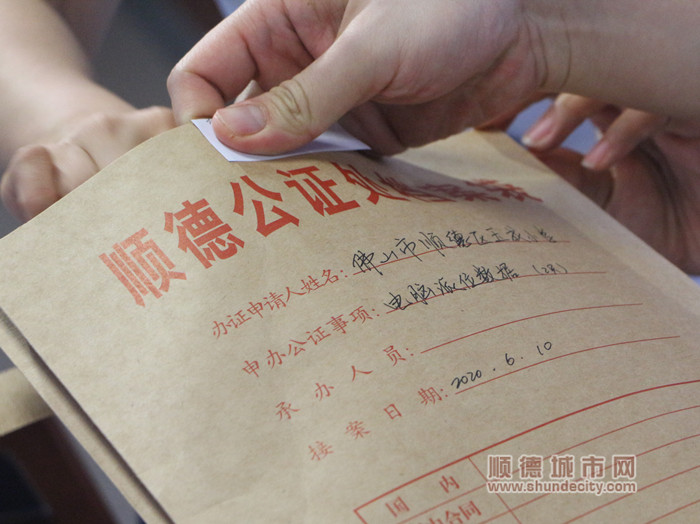 顺德公证处
办证申请人姓名：佛山市顺德区玉成小学
申办公证事项：电脑派位数据
承办人员：
接案日期：2020.6.10
国内
合同
顺德城市网
www.shundecity.com